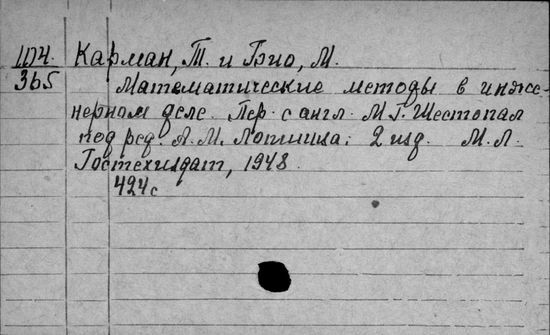 1174. Карман, Т. и Био, М.
365 Математические методы в инже-
нерном деле. Пер. с англ. М.Г. Шестопал
под ред. А.М. Лопшица. 2 изд. М.Л.
Гостехиздат, 1948.
424 с